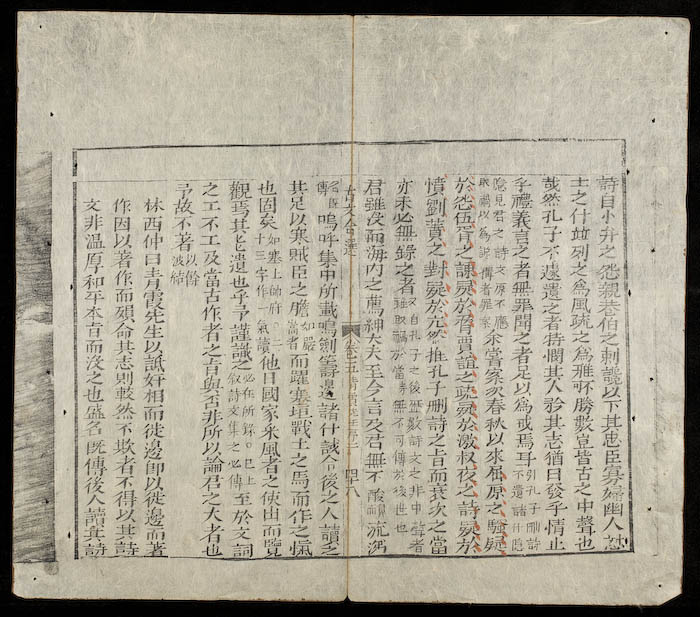 詩自小弁之怨親巷伯之刺讒以下其忠臣寡婦幽人懟
士之什並列之為風疏之為雅不可勝數豈皆古之中聲也
哉然孔子不遽遺之者特憫其人矜其志猶曰發乎情止
乎禮義言之者無罪聞之者足以為戒焉耳引孔子刪詩不遺諸什隱
隱見君之詩文原不應取禍以為詩傳者罪案余嘗案次春秋以來屈原之騷疑
於怨伍胥之諫疑於脅賈誼之疏疑於激叔夜之詩疑於
憤劉蕡之對疑於亢然推孔子刪詩之旨而裒次之當
亦未必無錄之者又自孔子之後歷數詩文之非中聲者雖取禍於當時無不可傳於後世也
君既沒而海內之薦紳大夫至今言及君無不酸鼻流涕
古文會選 卷之五 青霞先生序 四十八
名臣傳嗚呼集中所載鳴劍籌邊諸什試令後之人讀之
其足以寒賊臣之膽如嚴嵩者而躍塞垣戰士之馬而作之愾
也固矣如塞上帥府二十三字作一氣讀他日國家采風者之使出而覽
觀焉其能遺也乎予謹識之必在所錄○已上叙詩文集之必傳至於文詞
之工不工及當古作者之旨與否非所以論君之大者也
予故不著以餘波結
林西仲曰青霞先生以詆奸相而徙邊即以徙邊而著
作因以著作而殞命其志則較然不欺者不得以其詩
文非溫厚和平本旨而沒之也盛名既傳後人讀其詩